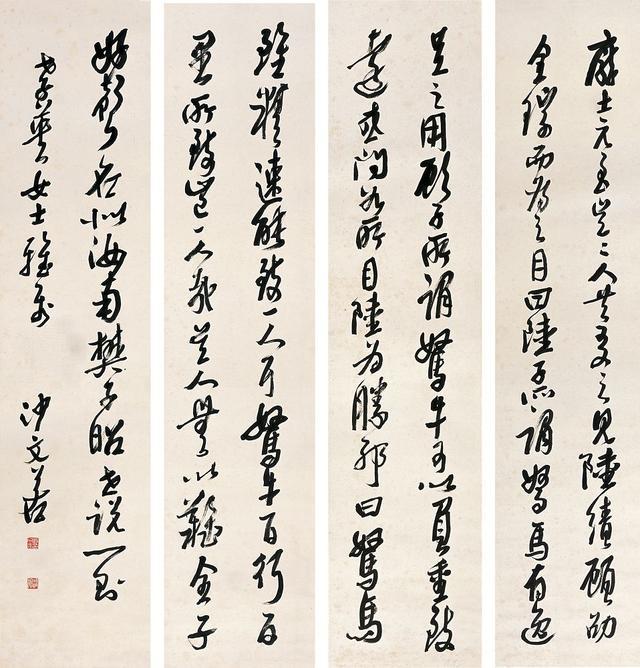 龐士元至吳〻人並友之見陸績顧劭
全琮而為之目曰陸子所謂駑馬有逸
足之用顧子所謂駑牛可以負重致
遠或問如所目陸為勝邪曰駑馬
雖精速能致一人耳駑牛一日行百
里所致豈一人哉吳人無以難全子
好聲名似汝南樊子昭世說一則
女士雅屬 沙文若